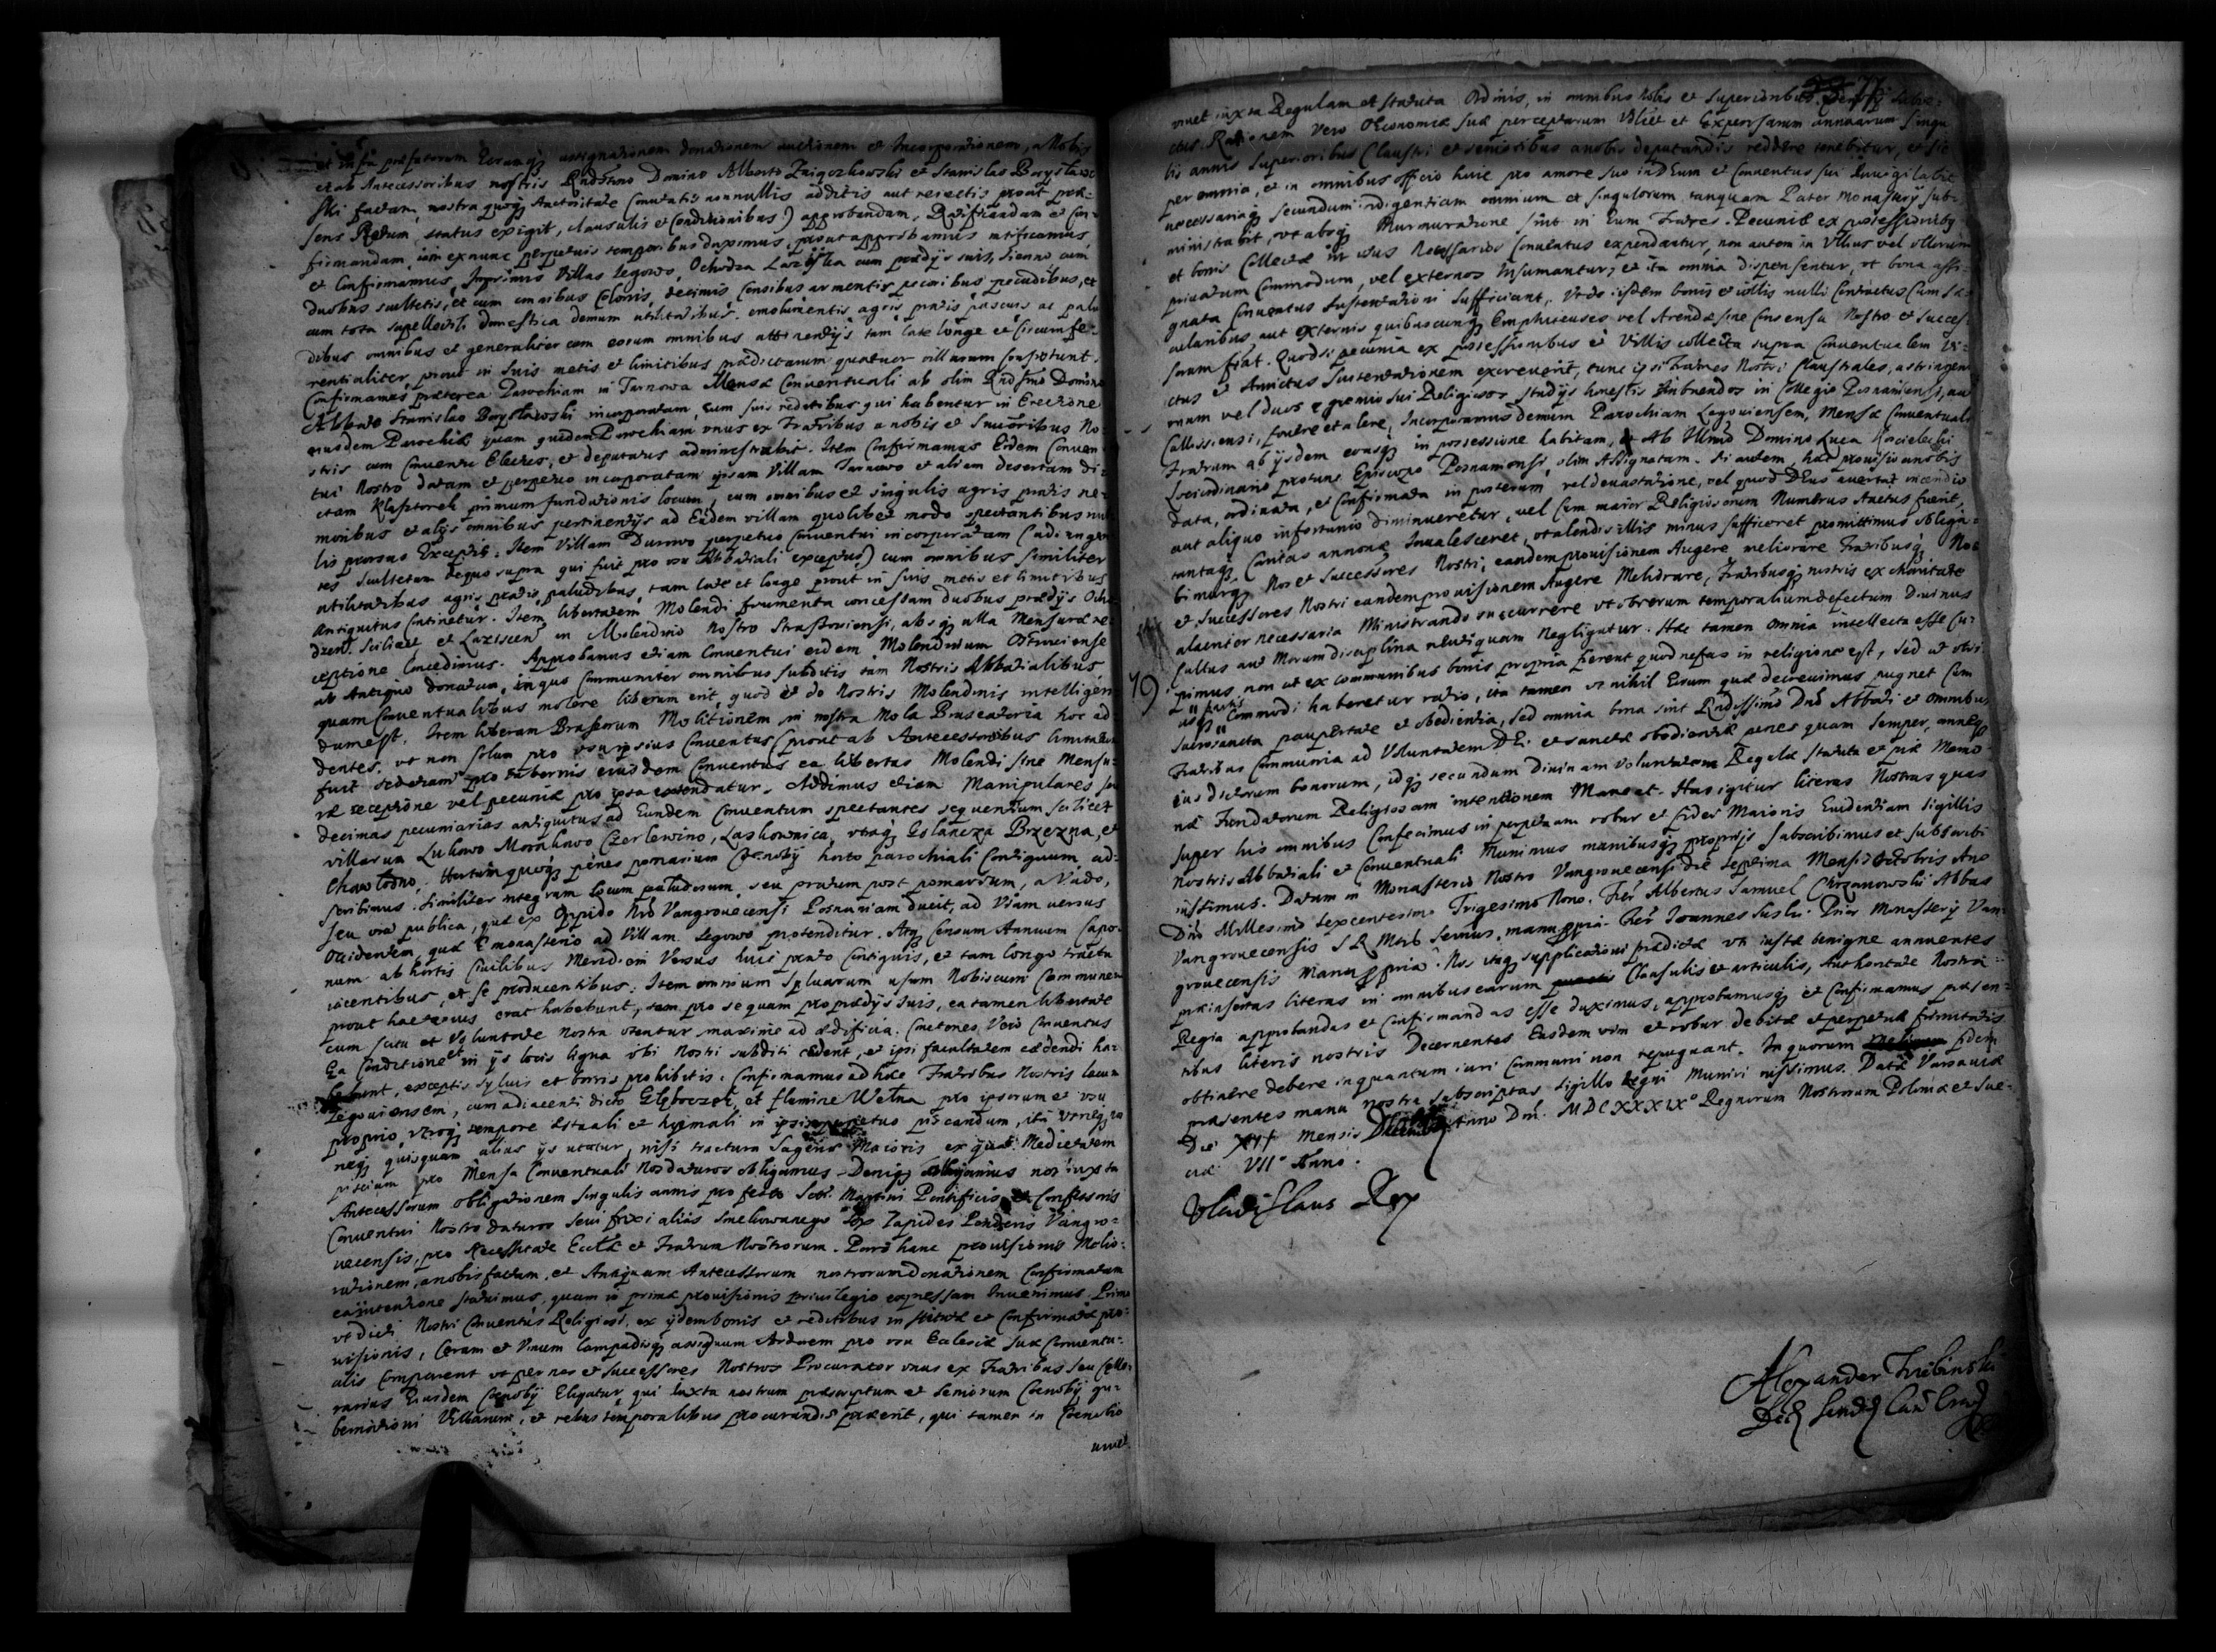 et infra praefatorum Eorumq; assignationem donationem auctionem et Incorporationem, a Nobis
et ab Antecessoribus nostris Rndssimo Domino Alberto Zaigorzkowski et Stanislao Borysław
ski factam, nostra quoq; Auctoritate (mutatis nonnullis additis aut reiectis prout prae-
sens Rerum status exigit, clausulis et Conditionibus) approbandam, Ratificandam et Con-
firmandam iam exnunc perpetuis temporibus duximus, prout approbamus ratificamus
et Confirmamus, Inprimis Villas Legowo, Ochodza Laziska cum praedijs suis, Sienno cum
duobus scultetis, et cum omnibus Colonis, decimis, Censibus armentis pecoribus pecudibus, et
cum tota supellectili domestica demum utilitatibus, emolumentis agris pratis pascuis ac palu
dibus omnibus et generaliter cum eorum omnibus attinentijs tam late longe et Circumfe-
rentialiter prout in suis metis et limitibus praedictarum quatuor villarum Consistunt.
Confirmamus praeterea Parochiam in Tarnowa Mensae Conventuali ab olim Rndssimo Domino
Abbate Stanislao Borysławski incorporatam, cum suis reditibus qui habentur in Erectione
eiusdem Parochiae quam quidem Parochiam unus ex Fratribus a nobis et Successoribus No
stris cum Conventu Electus, et deputatus administrabit. Item Confirmamus Eidem Conven
tui Nostro datam et perpetuo incorporatam ipsam Villam Tarnowo et aliam desertam di-
ctam Klasztorek primum fundationis locum, cum omnibus et singulis agris pratis ne-
moribus et alijs omnibus pertinentijs ad Eandem villam quolibet modo spectantibus nul
lis prorsus Exceptis. Item Villam Durowo perpetuo Conventui incorporatam (adiungen
tes Scultetum de quo supra qui fuit pro usu Abbatiali exceptus) cum omnibus similiter
utilitatibus agris pratis paludibus, tam late et longe prout in suis metis et limitibus
Antiquitus Continetur. Item libertatem Molendi frumenta concessam duobus praedijs Ocho
dzen. scilicet et Laziscen in Molendino nostro Straszoviensi, absq; ulla Mensurae re-
ceptione Concedimus. Approbamus etiam Conventui eidem Molendinum Ostroviense
ab Antiquo donatum, in quo Communiter omnibus subditis tam Nostris Abbatialibus
quam Conventualibus molere liberum erit, quod et de Nostris Molendinis intelligen
dum est. Item liberam Braseorum Molitionem in nostra Mola Braseatoria hoc ad
dentes, ut non solum pro usu ipsius Conventus (prout ab Antecessoribus limitatum
fuit sed etiam pro tabernis eiusdem Conventus ea libertas Molendi sine Mensu-
rae receptione vel pecuniae pro ipsa extendatur. Addimus etiam Manipulares seu
decimas pecuniarias antiquitus ad Eundem Conventum spectantes sequentium scilicet
villarum Lukowo Morakowo Czerlewino, Laskownica, utraq; Golancza Brzezna, et
Chawłodno. Hortum quoq; penes pomarium Coenobij horto parochiali Contiguum ad-
scribimus. Similiter integrum locum paludosum, seu pratum post pomarium, a Vado,
seu via publica, quae ex Oppido Nro Vangrovecensi Posnaniam ducit, ad Viam versus
Occidentem, quae E monasterio ad Villam Legowo protenditur. Atq; Censum Annuum Capo-
num ab hortis Civilibus Meridiem Versus huic prato Contiguis, et tam longo tractu
iacentibus, et se producentibus: Item omnium Sylvarum usum Nobiscum Communem
prout hactenus erat habebunt, tam pro se quam pro praedijs suis, ea tamen libertate
cum scitu et Voluntate nostra utentur maxime ad aedificia. Cmetones Vero Conventus
Ea Conditione et in ijs locis ligna ubi Nostri subditi cedent, et ipsi facultatem cedendi ha-
bebunt, exceptis sylvis et borris prohibitis. Confirmamus ad haec Fratribus Nostris lacum
Legoviensem, cum adiacenti dicto Głęboczek, et flumine Wełna pro ipsorum et usu
proprio, utroq; tempore aestivali et hyemali in ipsis perpetuo piscandum, ita ut neq; nos
neq; quisquam alius ijs utatur, nisi tractura Sagenae Maioris ex qua Medietatem
piscium pro Mensa Conventuali Nos daturos obligamus. Deniq; obligamus nos iuxta
Antecessorum obligationem singulis annis pro festo Scti Martini Pontificis et Confessoris
Conventui Nostro daturos sevi fixi alias smelcowanego sex Lapides Ponderis Vangro-
vecensis, pro Necessitate Ecclae et Fratrum Nostrorum. Porro hanc provisionis Melio-
rationem, a nobis factam, et Antiquam Antecessorum nostrorum donationem Confirmatam
ea intentione statuimus, quam in primae provisionis privilegio expressam Invenimus. Primo
ut dicti Nostri Conventus Religiosi, ex ijdem bonis et reditibus institutae et Confirmatae pro-
visionis, Ceram et Vinum lampadisq; assiduum Ardorem pro usu Ecclesiae suae Conventu-
alis Comparent ut per nos et successores Nostros Procurator unus ex Fratribus seu Celle-
rarius Eiusdem Coenobij Eligatur, qui Iuxta nostrum praescriptum et seniorum Coenobij gu-
bernationi Villarum, et rebus temporalibus procurandis praeerit, qui tamen in Coenobio
vivet
vivet iuxta Regulam et statuta Ordinis, in omnibus nobis et superioribus Coenobij subie-
ctus. Rationem Vero Oeconomiae suae perceptarum Videlicet et Expensarum annuarum singu
lis annis superioribus Claustri et senioribus a nobis deputandis reddere tenebitur, et sic
per omnia, et in omnibus officio huic pro amore suo in DEum et Conventus sui Invigilabit
necessariaq; secundum indigentiam omnium et singulorum tanquam Pater Monasterij sub-
ministrabit, ut absq; Murmuratione sint in Eum Fratres. Pecuniae ex possessionibq
et bonis Collectae in usus Necessarios Conventus expendantur, non autem in Ullius vel illorum
privatum Commodum, vel externos Insumantur, et ita omnia dispensentur, ut bona assi-
gnata Conventus sustentationi sufficiant. Unde iisdem bonis et villis nulli Contractus Cum sae-
cularibus, aut externis quibuscunq; Emphiteuses vel Arendae sine Consensu Nostro et Succes-
sorum fiat. Quod si pecunia ex possessionibus et Villis collecta supra Conventualem Vi-
ctus et Amictus sustentationem excreverit, tunc ipsi Fratres Nostri Claustrales, astringentur
unum vel duos e gremio sui Religiosos studijs honestis Imbuendos in Collegio Posnaniensi, aut
Calissiensi, fovere et alere, Incorporamus demum Parochiam Legoviensem, Mensae Conventuali
Fratrum ab ijsdem eousq; in possessione habitam, et Ab Illmo Domino Luca Koscielecki
Loci ordinario pro tunc Episcopo Posnaniensi, olim Assignatam. Si autem, haec provisio a nobis
data, ordinata, et Confirmata in posterum vel devastatione, vel quod DEus avertat incendio
aut aliquo infortunio diminueretur, vel Cum maior Religiosorum Numerus Auctus fuerit,
tantaq; Caritas annonae Invalesceret, ut alendis illis minus sufficeret promittimus obliga-
bimusq; Nos et Successores Nostri, eandem provisionem Augere meliorare Fratribusq; Nos
et Successores Nostri eandem provisionem Augere Meliorare, Fratribusq; nostris ex charitate
alacrior necessaria Ministrando succurrere ut ob rerum temporalium defectum Divinus
Cultus aut Morum disciplina nequaquam Negligatur. Haec tamen omnia intellecta esse Cu-
pimus non ut ex communibus bonis propria fierent quod nefas in religione est, sed ut ubi
usq; Commodi haberetur ratio, ita tamen ut nihil Eorum quae decrevimus pugnet Cum
Sacrosancta paupertate et obedientia, sed omnia bona sint Rndissimo Dno Abbati et omnibus
Fratribus Communia ad Voluntatem DEi et sanctae obedientiae penes quam semper, annexum
ius dictorum bonorum, idq; secundum Divinam Voluntatem Regulae Statuta et piae Memo-
riae Fundatorum Religiosam intentionem Maneat. Has igitur literas Nostras quas
super his omnibus Confecimus in perpetuam robur et fidei Maioris Evidentiam sigillis
Nostris Abbatiali et Conventuali Munimus manibusq; proprijs subscribimus et subscribi
iussimus. Datum in Monasterio Nostro Vangrovecensi die septima Mensis Octobris Ano
Dni Millesimo sexcentesimo Trigesimo Nono. Frr Albertus Samuel Chrzanowski Abbas
Vangrovecensis S R Mtis Servus, manu ppria. Frr Ioannes Suski Prior Monasterij Van-
grovecensis Manu ppria. Nos itaq; supplicationi praedictae uti iustae benigne annuentes
praeinsertas literas in omnibus earum Clausulis et articulis, Authoritate Nostra
Regia approbandas et Confirmandas esse duximus, approbamusq; et Confirmamus praesen-
tibus literis nostris Decernentes Easdem vim et robur debitae et perpetuae firmitatis
obtinere debere inquantum iuri Communi non repugnant. In quorum fidem
praesentes manu nostra subscriptas sigillo Regni Muniri iussimus. Datae Varsaviae
Die XII Mensis Decembris Anno Dni MDCXXXIX° Regnorum Nostrorum Poloniae et Sue-
ciae VII° Anno.
Vladislaus Rex
Alexander Trzebinski